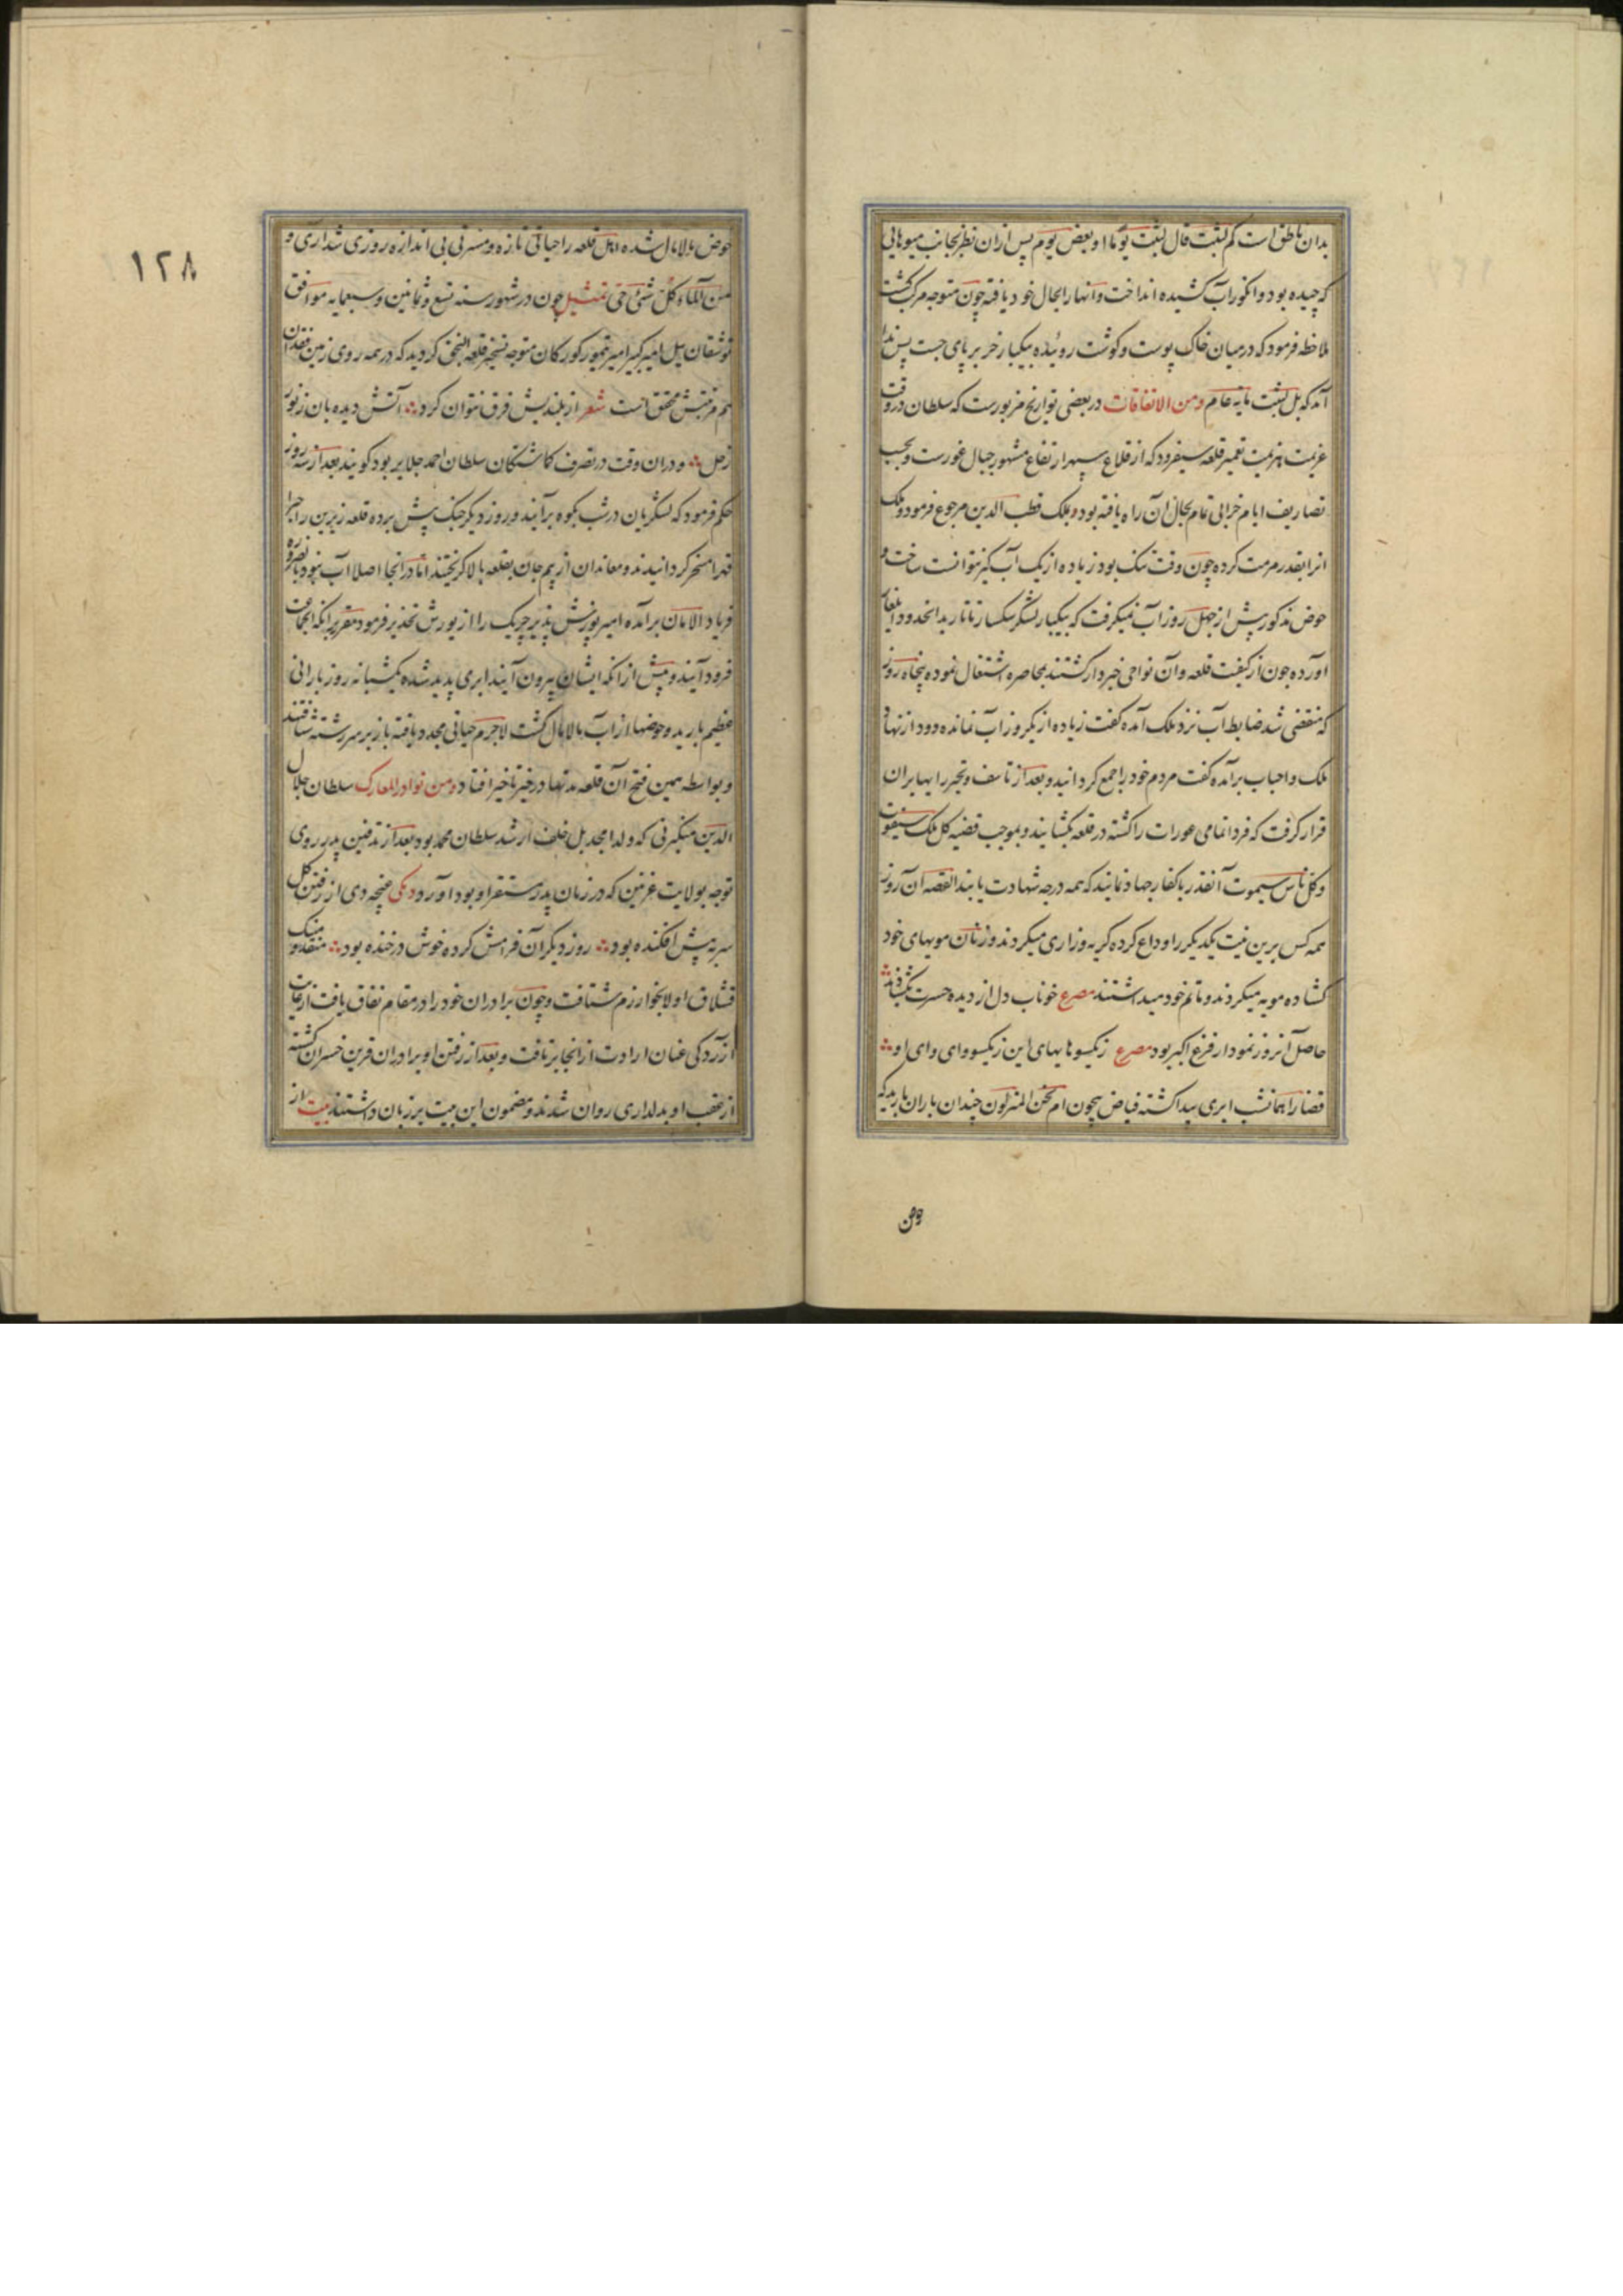 بدان ناطق است کم لبثت قال لبثت یوما او بعض یوم پس ازان نظر بجانب میوهایی
که چیده بود و انکور آب کشیده انداخت و انها را بحال خود یافته چون متوجه مرکب کشت
ملاحظه فرمود که در میان خاک پوست و کوشت روئیده بیکبار خر بر پای جست پس ندا
آمد که بل لبثت مایه عام ومن الاتفاقات در بعضی تواریخ مزبورست که سلطان در وقت
عزیمت هزیمت تعمیر قلعه سیفرود که از قلاع سپهر ارتفاع مشهور جبال غورست و بحسب
تصاریف ایام خرابی تمام بحال آن راه یافته بود و بملک قطب الدین مرجوع فرمود و ملک
انرا بقدر مرمت کرده چون وقت تنک بود زیاده از یک آب کیر نتوانست ساخت و
حوض مذکور پیش از چهل روز آب نمیکرفت که بیکبار لشکر سکسار تاتار بد انحدود ایلغار
اورده چون از کیفیت قلعه وآن نواحی خبردار کشتند بمحاصره اشتغال نموده پنجاه روز
که منقضی شد ضابط آب نزد ملک آمده کفت زیاده از یکروز آب نمانده دود از نهاد
ملک و احباب برآمده کفت مردم خود را جمع کردانید و بعد از تاسف و تحیر رایها بران
قرار کرفت که فردا تمامی عورات را کشته در قلعه بکشایند و بموجب قضیه کل ملک سیفوت
وکل ناس سیموت آنقدر با کفار جهاد نمایند که همه درجه شهادت یابند القصه آن روز
همه کس برین نیت یکدیکر را وداع کرده کریه و زاری میکردند و زنان مویهای خود
کشاده مویه میکردند و ماتم خود میداشتند مصرع خوناب دل از دیده حسرت بکشادند
حاصل آنروز نمودار فزع اکبر بود مصرع زکیسوها یهای این زکیسو وای وای او
قضا را همانشب ابری پیدا کشته فیاض بیچون ام نحن المنزلون چندان باران بارید که
ومن
١٢٨
حوض مالامال شده اهل قلعه را حیاتی تازه و مسرتی بی اندازه روزی شد اری و
من آلماء کل شئ حی تمثیل چون در شهور سنه تسع و ثمانین و سبعمایه موافق
توشقان ییل امیر کبیر امیر تیمور کورکان متوجه تسخیر قلعه النجق کردید که در همه روی زمین فقدان
هم مرتبتش محقق است شعر از بلندیش فرق نتوان کرد آتش دیده بان ز نور
زحل و دران وقت در تصرف کماشتکان سلطان احمد جلایر بود کویند بعد از سه روز
حکم فرمود که لشکریان در شب بکوه برآیند و روز دیکر جنک پیش برده قلعه زیرین را جبرا
قهرا مسخر کردانیدند و معاندان از بیم جان بقلعه بالا کریختند اما در انجا اصلا آب نبود بالضروره
فریاد الامان برآمده امیر پوزش پذیر چریک را از یورش تحذیر فرمود مقرر برانکه انجماعت
فرود آیند و پیش از انکه ایشان بیرون آیند ابری پدید شده یکشبانه روز بارانی
عظیم بارید و حوضها از آب مالامال کشت لاجرم حیاتی مجدد یافته باز بر سررشته شتافتند
و بواسطه همین فتح آن قلعه مدتها در حیز تاخیر افتاد ومن نوادر المعارک سلطان جلال
الدین منکبرنی که ولد امجد بل خلف ارشد سلطان محمد بود بعد از تدفین پدر روی
توجه بولایت غزنین که در زمان پدر مستقر او بود آورد دکی غنچه دی از رفتن کل
سر به پیش افکنده بود روز دیکر آن فرامش کرده خوش در خنده بود
قشلاق اولا بخوارزم شتافت و چون برادران خود را در مقام نفاق یافت از غایت
آزردکی عنان ارادت از انجا برتافت و بعد از رفتن او برادران قرین خسران کشته
از عقب او بدلداری روان شدند و مضمون این بیت بر زبان داشتند بیت از